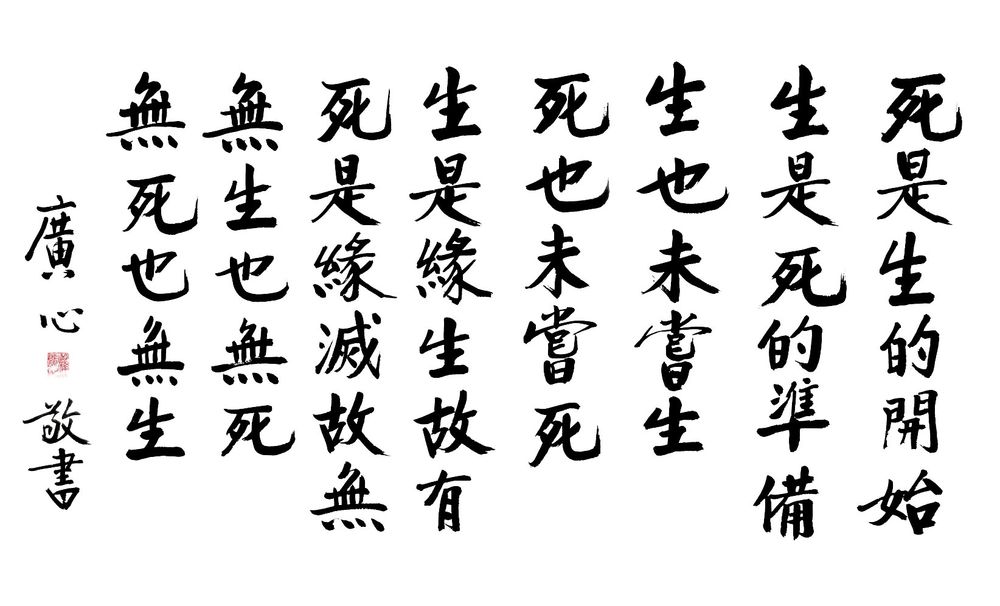 死是生的開始
生是死的準備
生也未嘗生
死也未嘗死
生是緣生故有
死是緣滅故無
無生也無死
無死也無生
廣心敬書